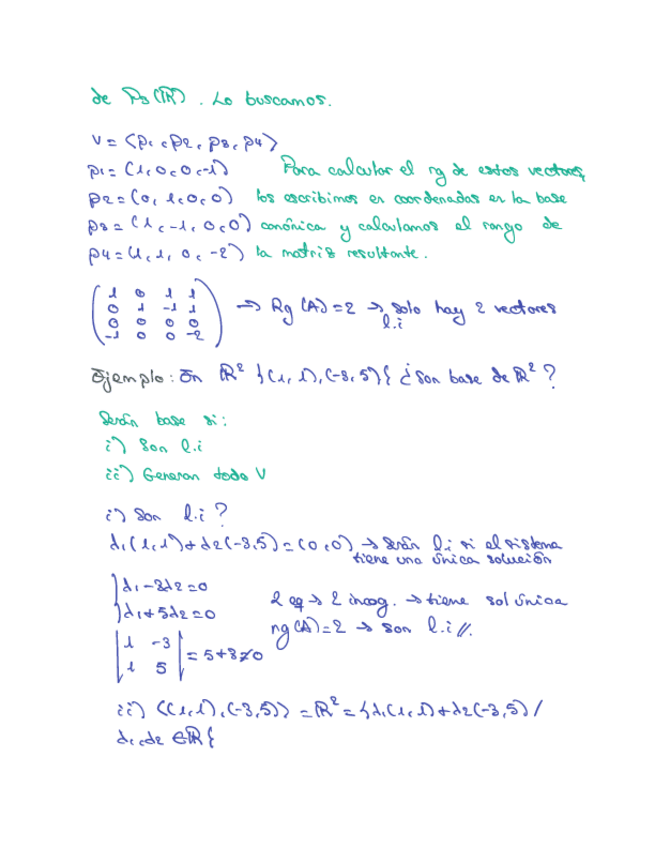 de P3(ℝ). Lo buscamos.
V = <p1, p2, p3, p4>
p1 = (1,0,0,-1) Para calcular el rg de estos vectores,
p2 = (0,1,0,0) los escribimos en coordenadas en la base
p3 = (1,-1,0,0) canónica y calculamos el rango de
p4 = (1,1,0,-2) la matriz resultante.
1 0 1 1
0 1 -1 1
0 0 0 0
-1 0 0 -2
→ Rg(A)=2 → solo hay 2 vectores
l.i
Ejemplo: En ℝ² {(1,1),(-3,5)} ¿Son base de ℝ²?
Serán base si:
i) Son l.i
ii) Generan todo V
i) Son l.i?
λ1(1,1)+λ2(-3,5)=(0,0) → Serán l.i si el sistema
tiene una única solución
λ1-3λ2=0
λ1+5λ2=0
2 eq → 2 incog. → tiene sol única
rg(A)=2 → son l.i //.
|1 -3|
|1 5| = 5+3≠0
ii) <(1,1),(-3,5)> = ℝ² = {λ1(1,1)+λ2(-3,5) /
λ1,λ2 ∈ℝ}